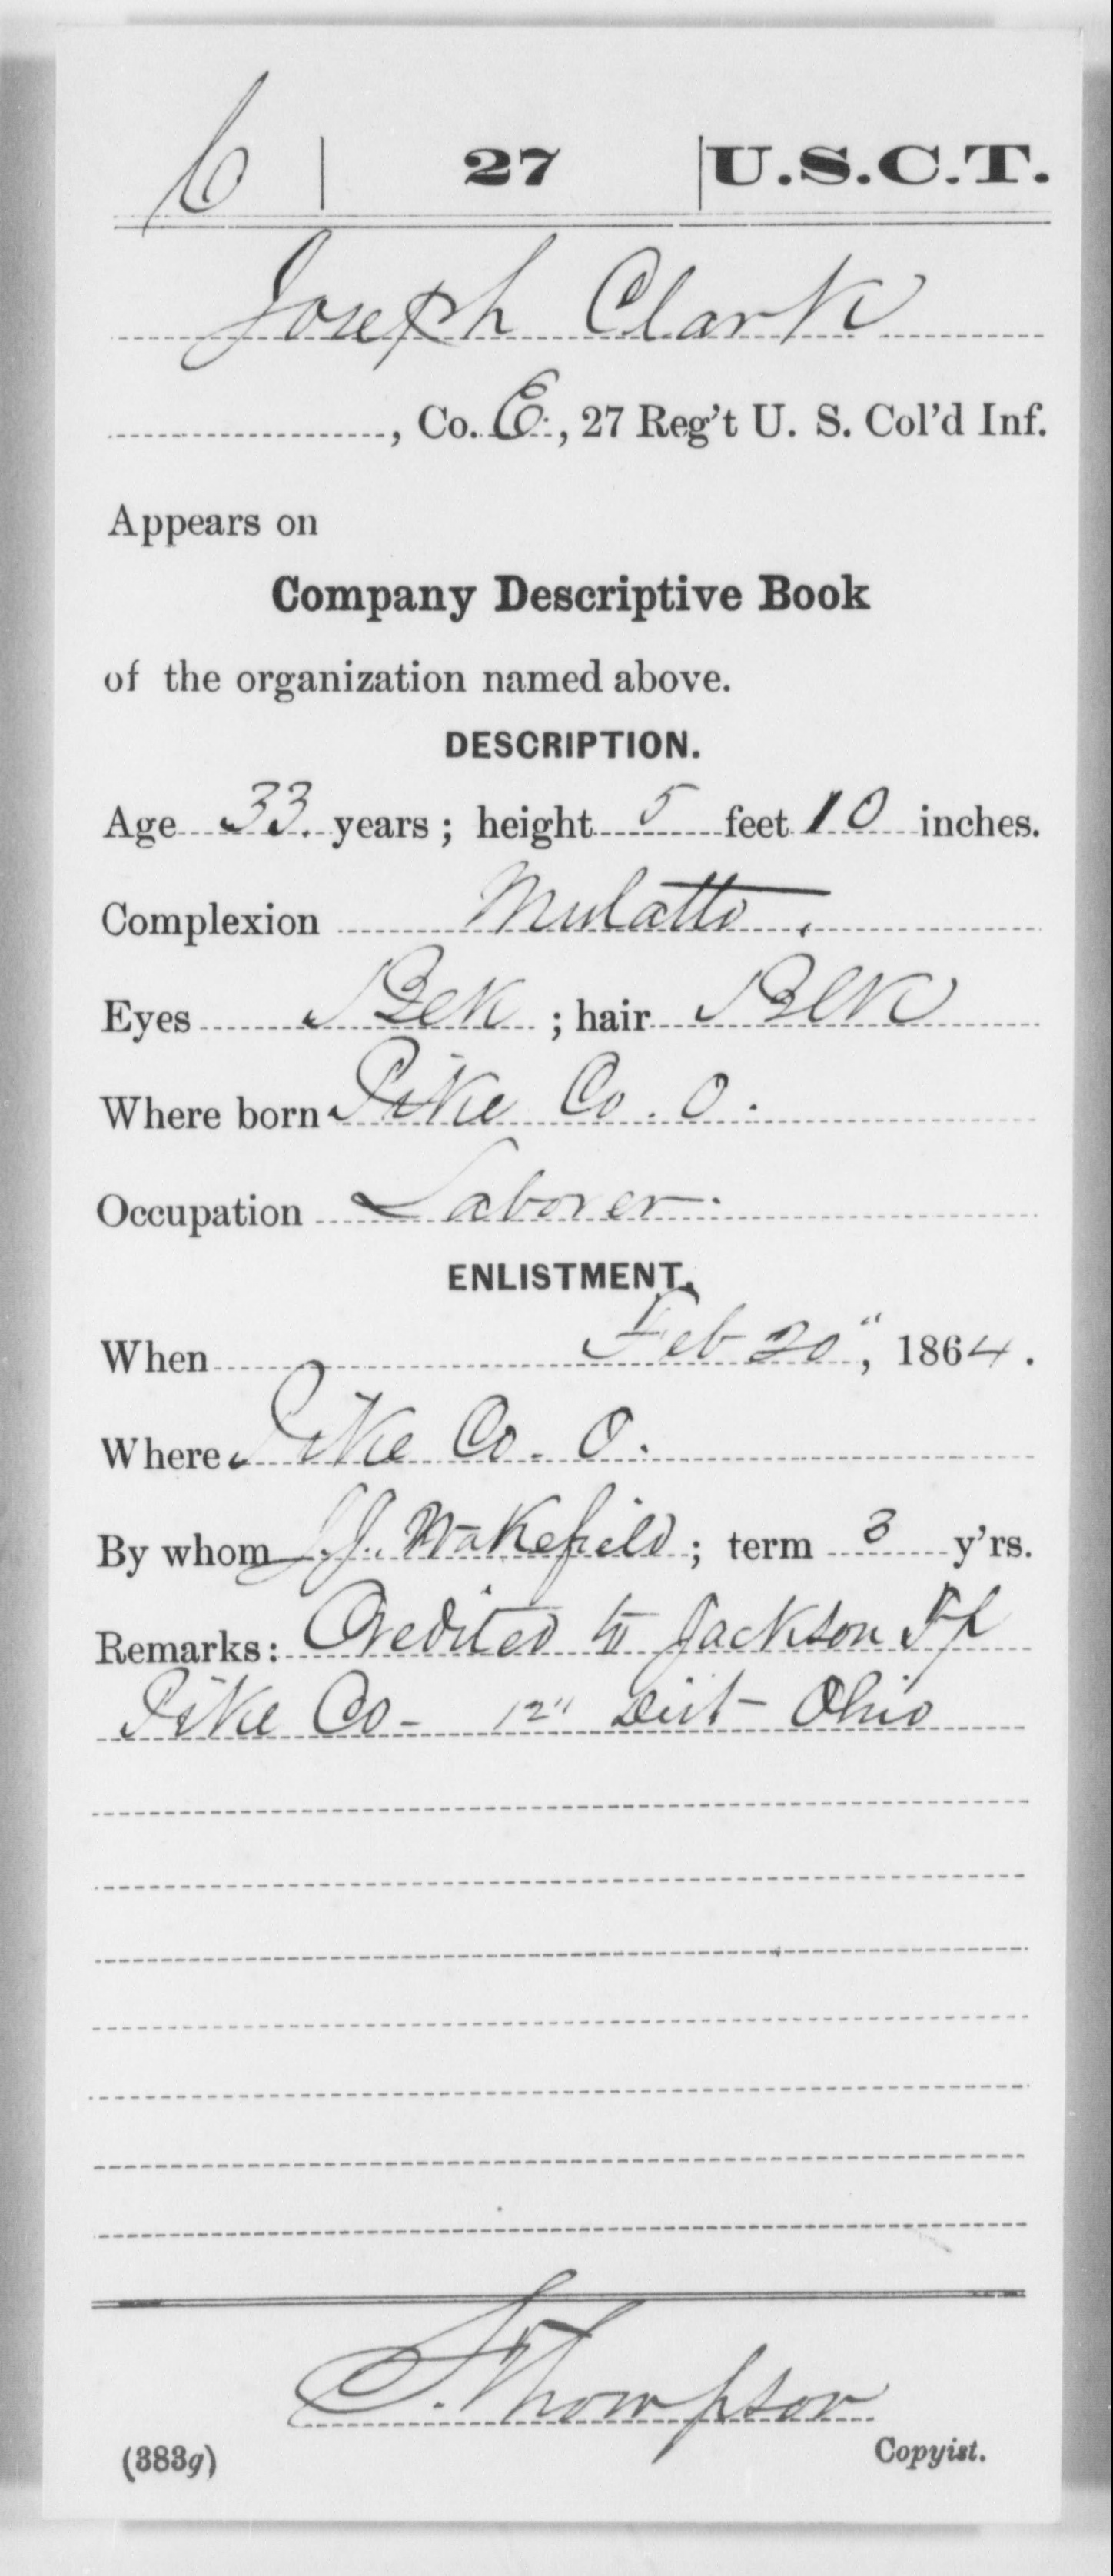 C | 27 | U.S.C.T.
Joseph Clark
, Co. E., 27 Reg't U. S. Col'd Inf.
Appears on
Company Descriptive Book
of the organization named above.
DESCRIPTION.
Age 33. years; height 5 feet 10 inches.
Complexion Mulatto.
Eyes Blk ; hair Blk
Where born Pike Co. O.
Occupation Laborer.
ENLISTMENT.
When Feb 20", 1864.
Where Pike Co. O.
By whom J.J. Wakefield; term 3 y'rs.
Remarks: Credited to Jackson Tp
Pike Co- 12" Dist- Ohio
S. Thompson
Copyist.
(383g)